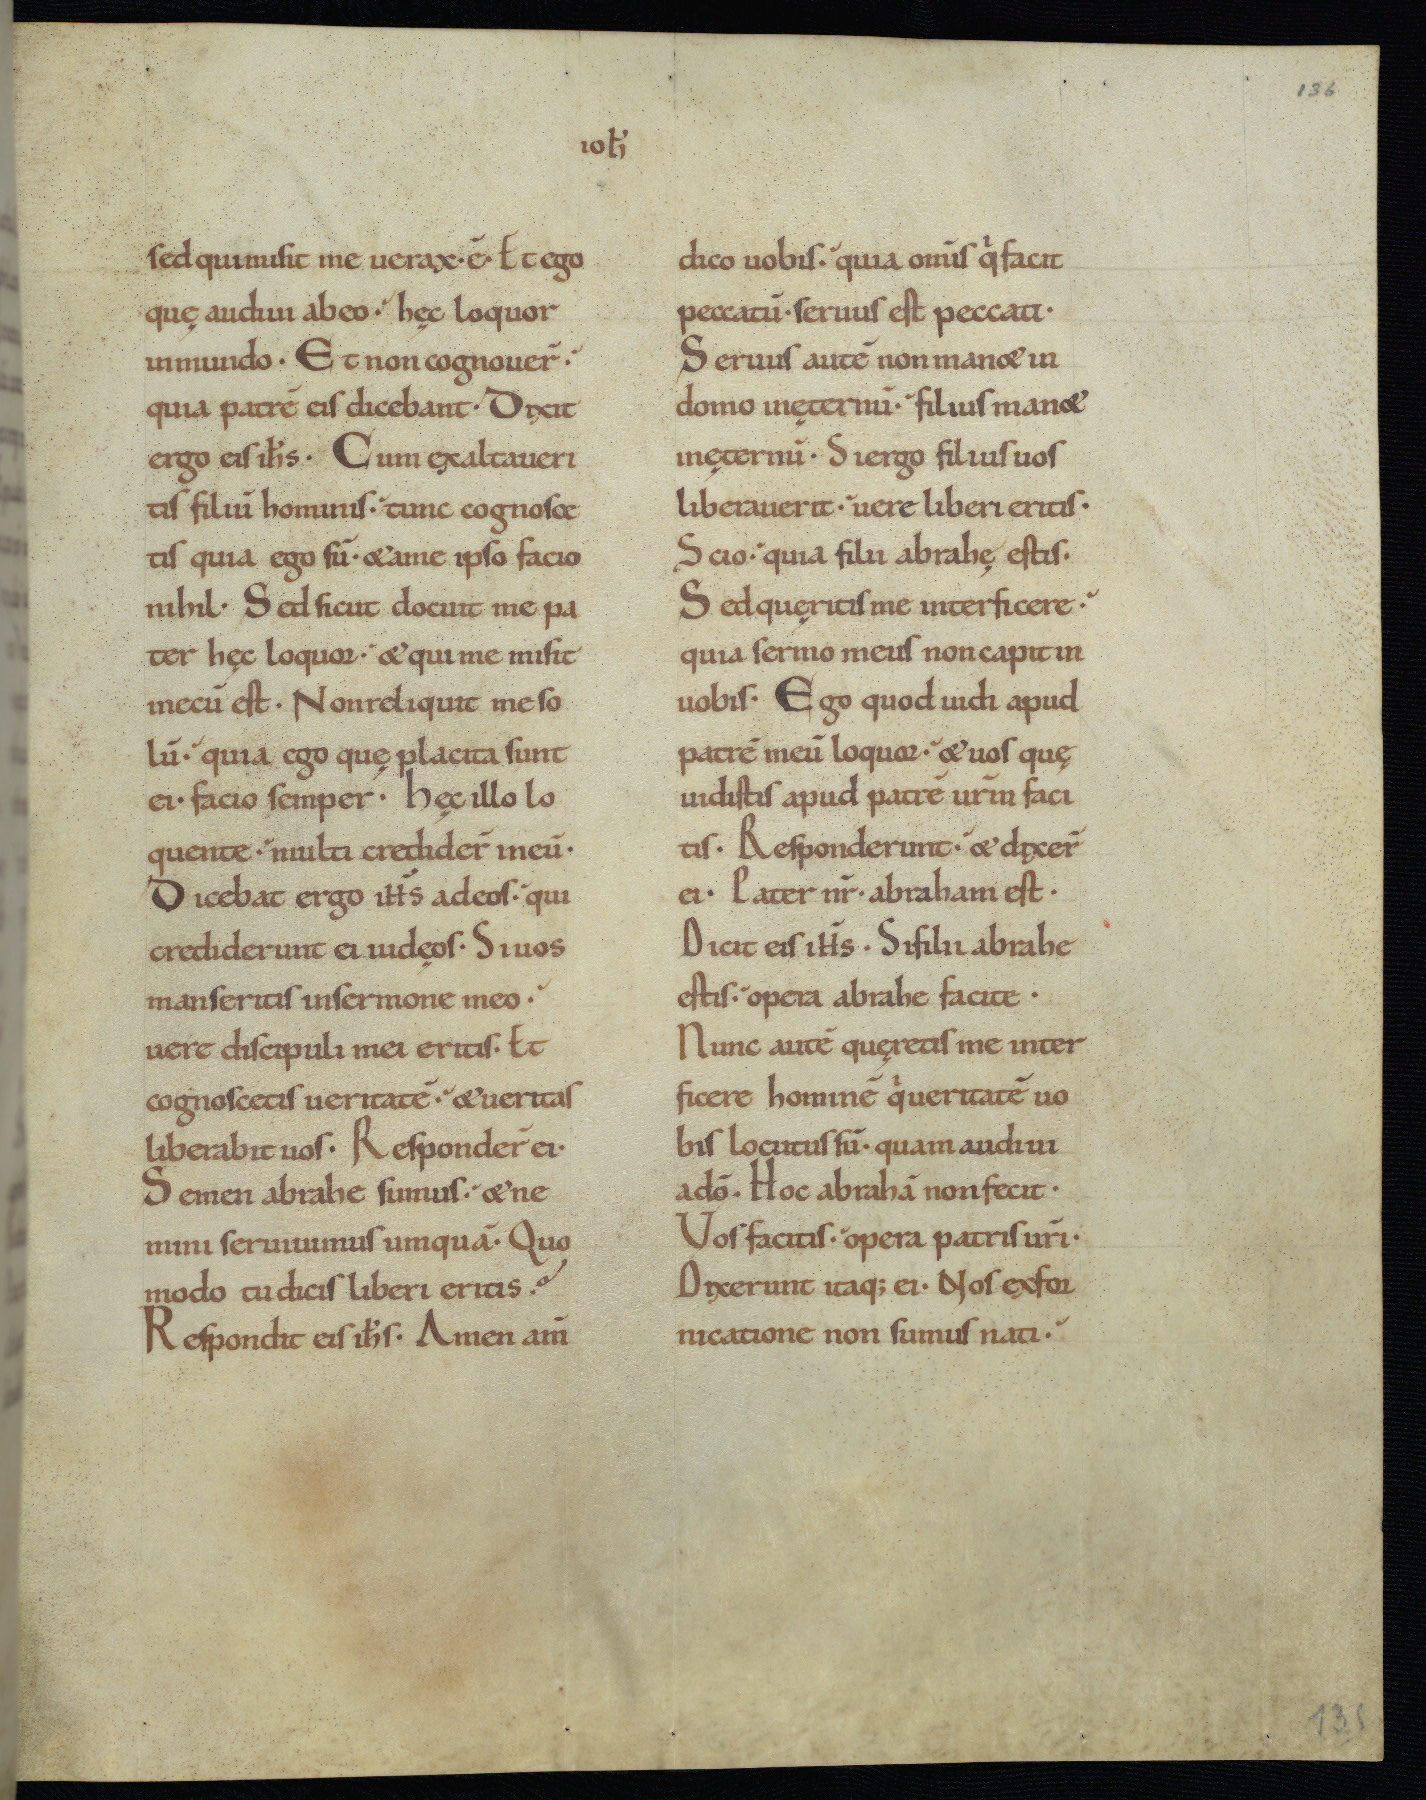 136
ioħ
sed qui misit me uerax·ē· Et ego
quę audiui ab eo· hęc loquor
in mundo· Et non cognouer̄·
quia patrē eis dicebant· Dixit
ergo eis ih̄s· Cum exaltaueri
tis filiū hominis· tunc cognosce
tis quia ego sū· & a me ipso facio
nihil· Sed sicut docuit me pa
ter hęc loquor· & qui me misit
mecū est· Non reliquit me so
lū· quia ego quę placita sunt
ei· facio semper· hęc illo lo
quente· multi credider̄ in eū·
Dicebat ergo ih̄s ad eos· qui
crediderunt ei iudęos· Si uos
manseritis in sermone meo·
uere discipuli mei eritis· Et
cognoscetis ueritatē· & ueritas
liberabit uos· Responder̄ ei·
Semen abrahe sumus· & ne
mini seruiuimus umquā· Quo
modo tu dicis liberi eritis·
Respondit eis ih̄s· Amen am̄
dico uobis· quia om̄is q̇ facit
peccatū· seruus est peccati·
Seruus autē non man& in
domo in ęternū· filius man&
in ęternū· Si ergo filius uos
liberauerit· uere liberi eritis·
Scio· quia filii abrahę estis·
Sed quęritis me interficere·
quia sermo meus non capit in
uobis· Ego quod uidi apud
patrē meū loquor· & uos quę
uidistis apud patrē ur̄m faci
tis· Responderunt· & dixer̄
ei· Pater nr̄· abraham est·
Dicit eis ih̄s· Si filii abrahe
estis· opera abrahe facite·
Nunc autē quęretis me inter
ficere hominē q̇ ueritatē uo
bis locutus sū· quam audiui
a dō· Hoc abrahā non fecit·
Vos facitis· opera patris ur̄i·
Dixerunt itaq; ei· Nos ex for
nicatione non sumus nati·